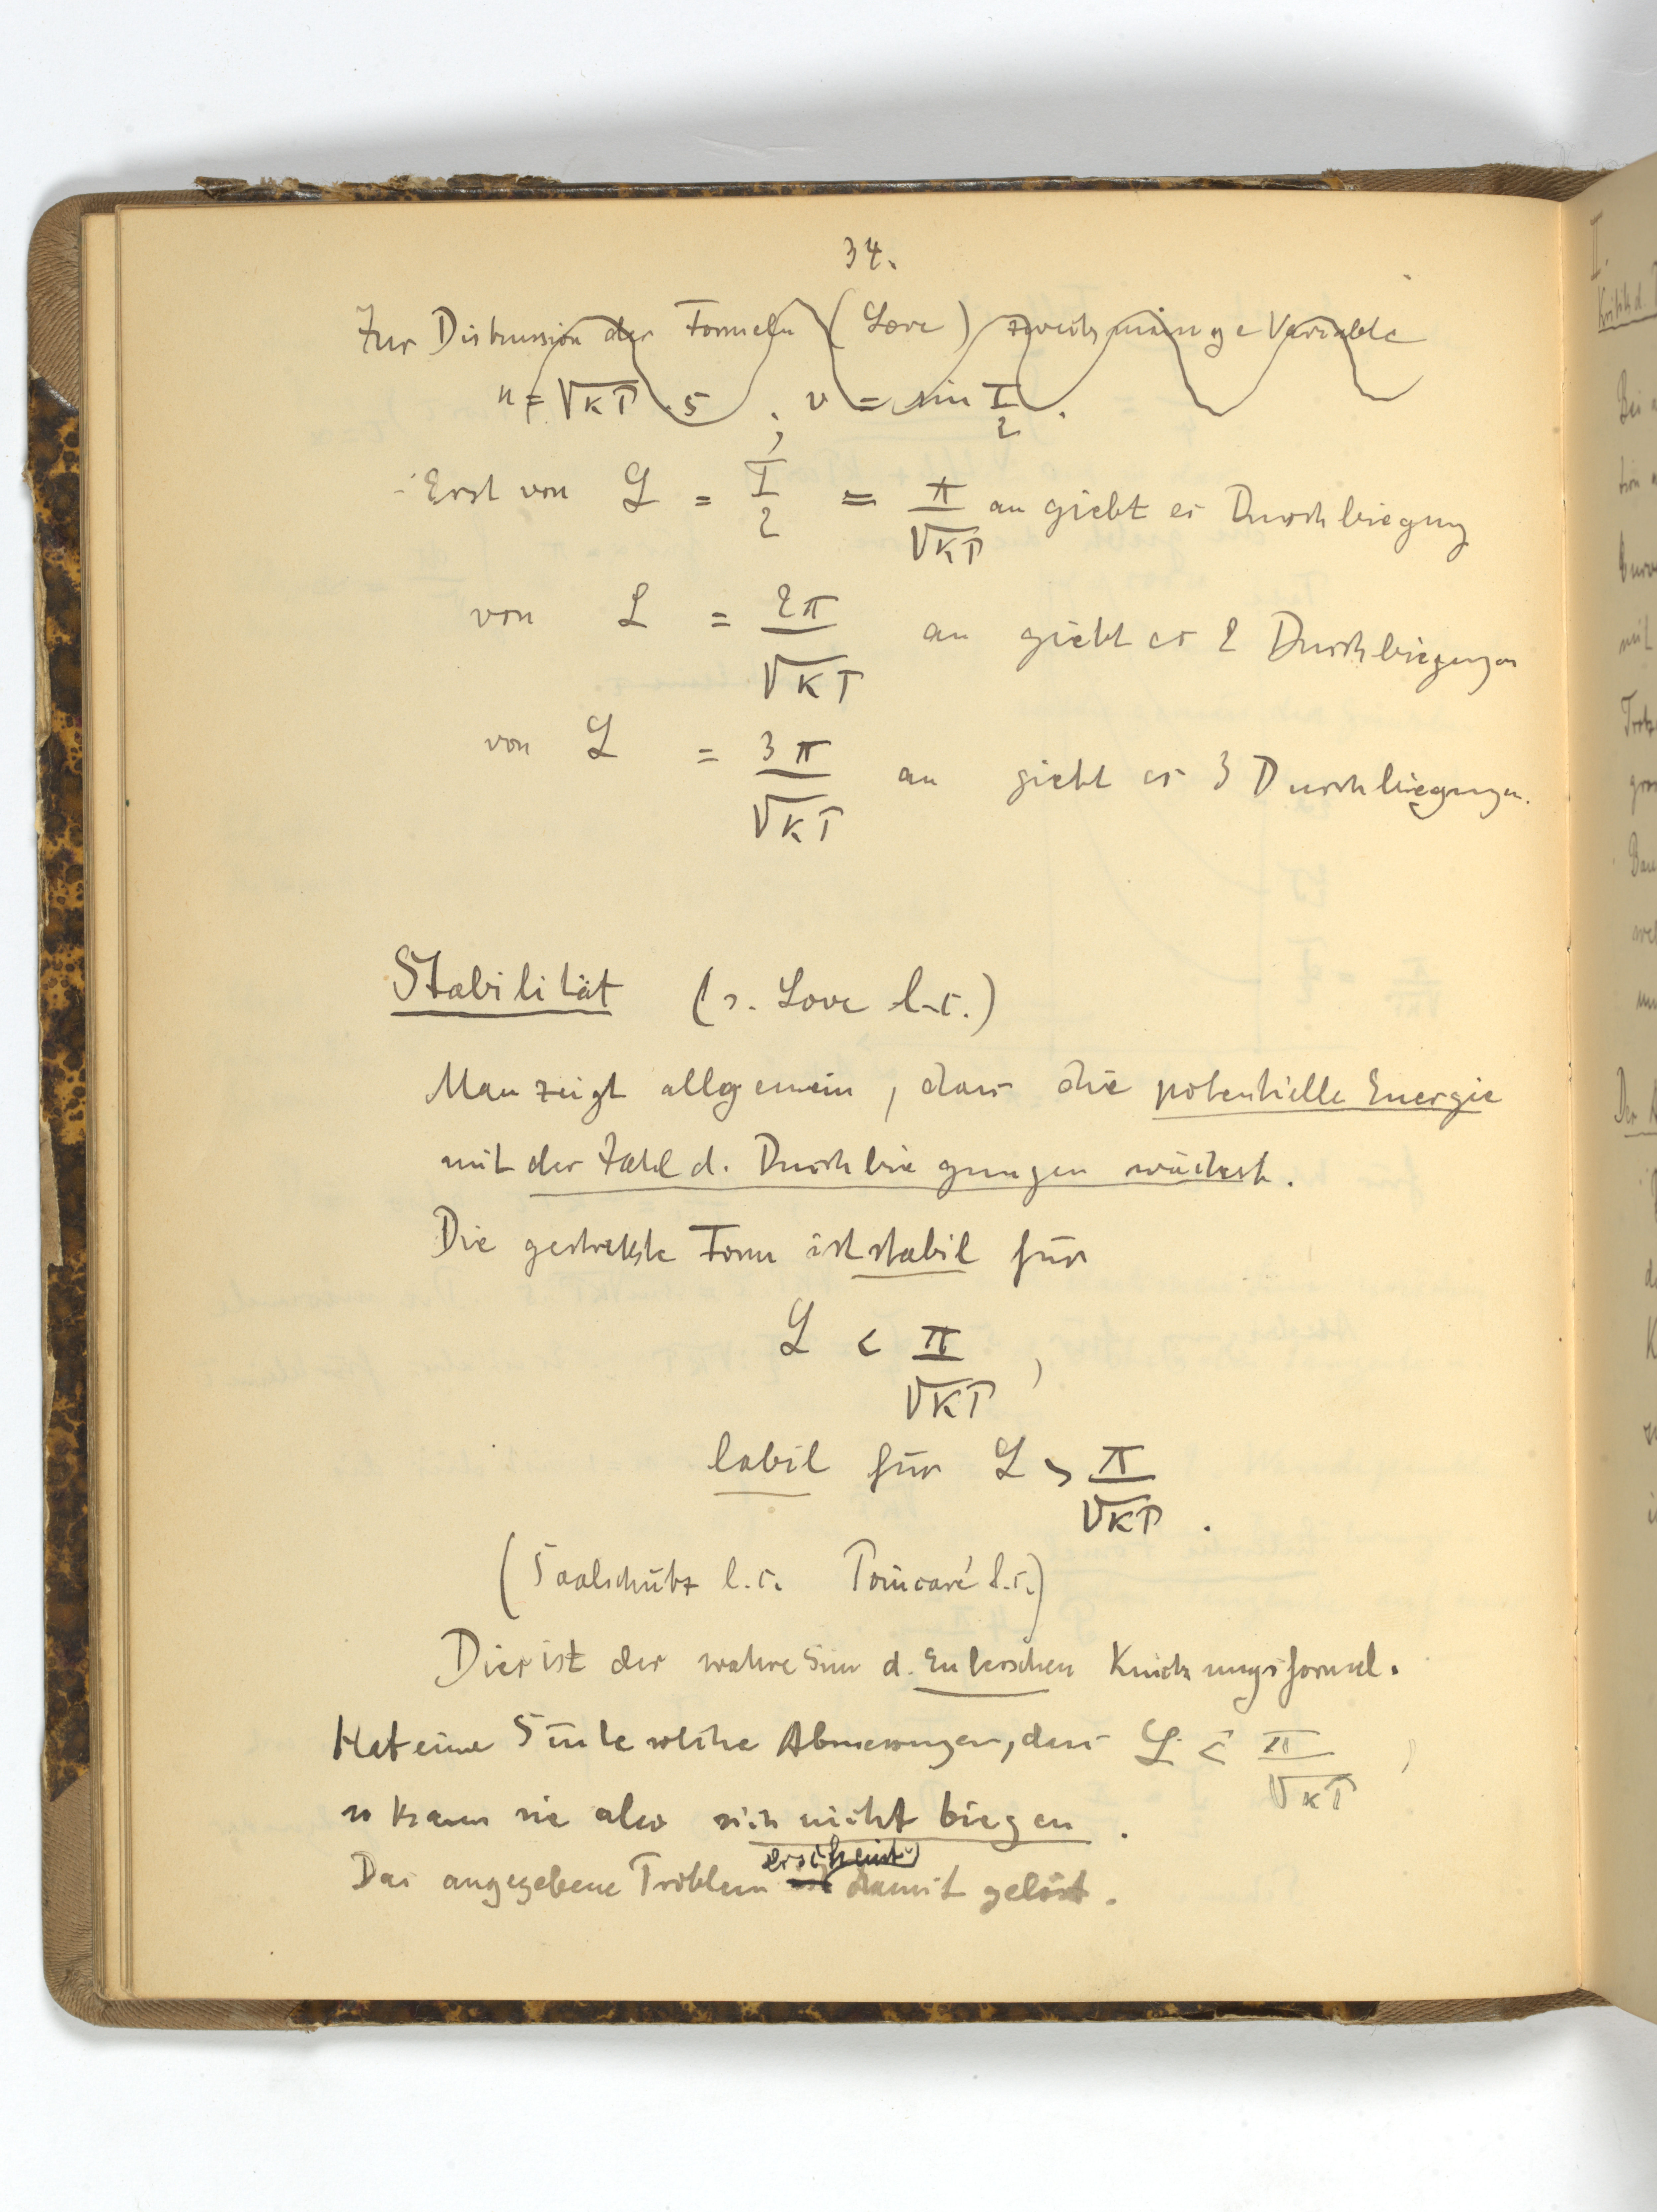 34.
Zur Diskussion der Formeln (Love) zweckmässige Variable
u = √KP · s ; v = sin I/2 .
Erst von L = I/2 = π/√KP an giebt es Durchbiegung
von L = 2π/√KP an giebt es 2 Durchbiegungen
von L = 3π/√KP an giebt es 3 Durchbiegungen.
Stabilität (s. Love l.c.)
Man zeigt allgemein, dass die potentielle Energie
mit der Zahl d. Durchbiegungen wächst.
Die gestreckte Form ist stabil für
L < π/√KP ,
labil für L > π/√KP .
(Saalschütz l.c. Poincaré l.c.)
Dies ist der wahre Sinn d. Eulerschen Knickungsformel.
Hat eine Säule solche Abmessungen, dass L < π/√KP ,
so kann sie also sich nicht biegen .
Das angegebene Problem erscheint damit gelöst .
II.
Kritik d.